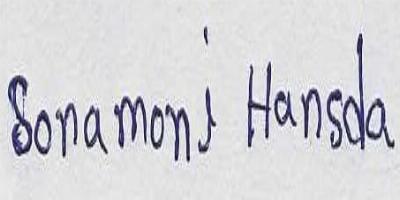 Sonamoni Hansda